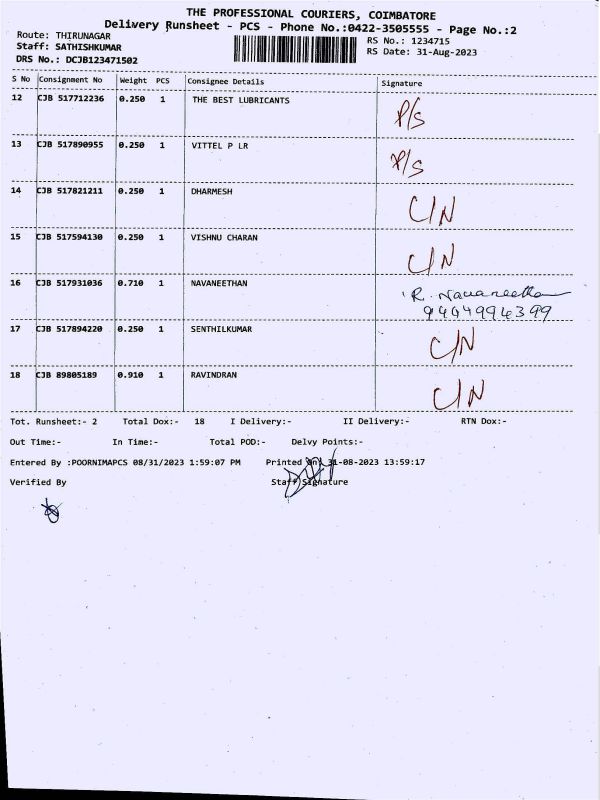 THE PROFESSIONAL COURIERS, COIMBATORE
Delivery Runsheet - PCS - Phone No.:0422-3505555 - Page No.:2
Route: THIRUNAGAR
RS No.: 1234715
Staff: SATHISHKUMAR
RS Date: 31-Aug-2023
DRS No.: DCJB123471502
S No Consignment No Weight PCS Consignee Details Signature
12 CJB 517712236 0.250 1 THE BEST LUBRICANTS P/S
13 CJB 517890955 0.250 1 VITTEL P LR P/S
14 CJB 517821211 0.250 1 DHARMESH C/N
15 CJB 517594130 0.250 1 VISHNU CHARAN C/N
16 CJB 517931036 0.710 1 NAVANEETHAN R. Navaneethan
9494994399
17 CJB 517894220 0.250 1 SENTHILKUMAR C/N
18 CJB 89805189 0.910 1 RAVINDRAN C/N
Tot. Runsheet:- 2 Total Dox:- 18 I Delivery:- II Delivery:- RTN Dox:-
Out Time:- In Time:- Total POD:- Delvy Points:-
Entered By :POORNIMAPCS 08/31/2023 1:59:07 PM Printed On: 31-08-2023 13:59:17
Verified By Staff Signature